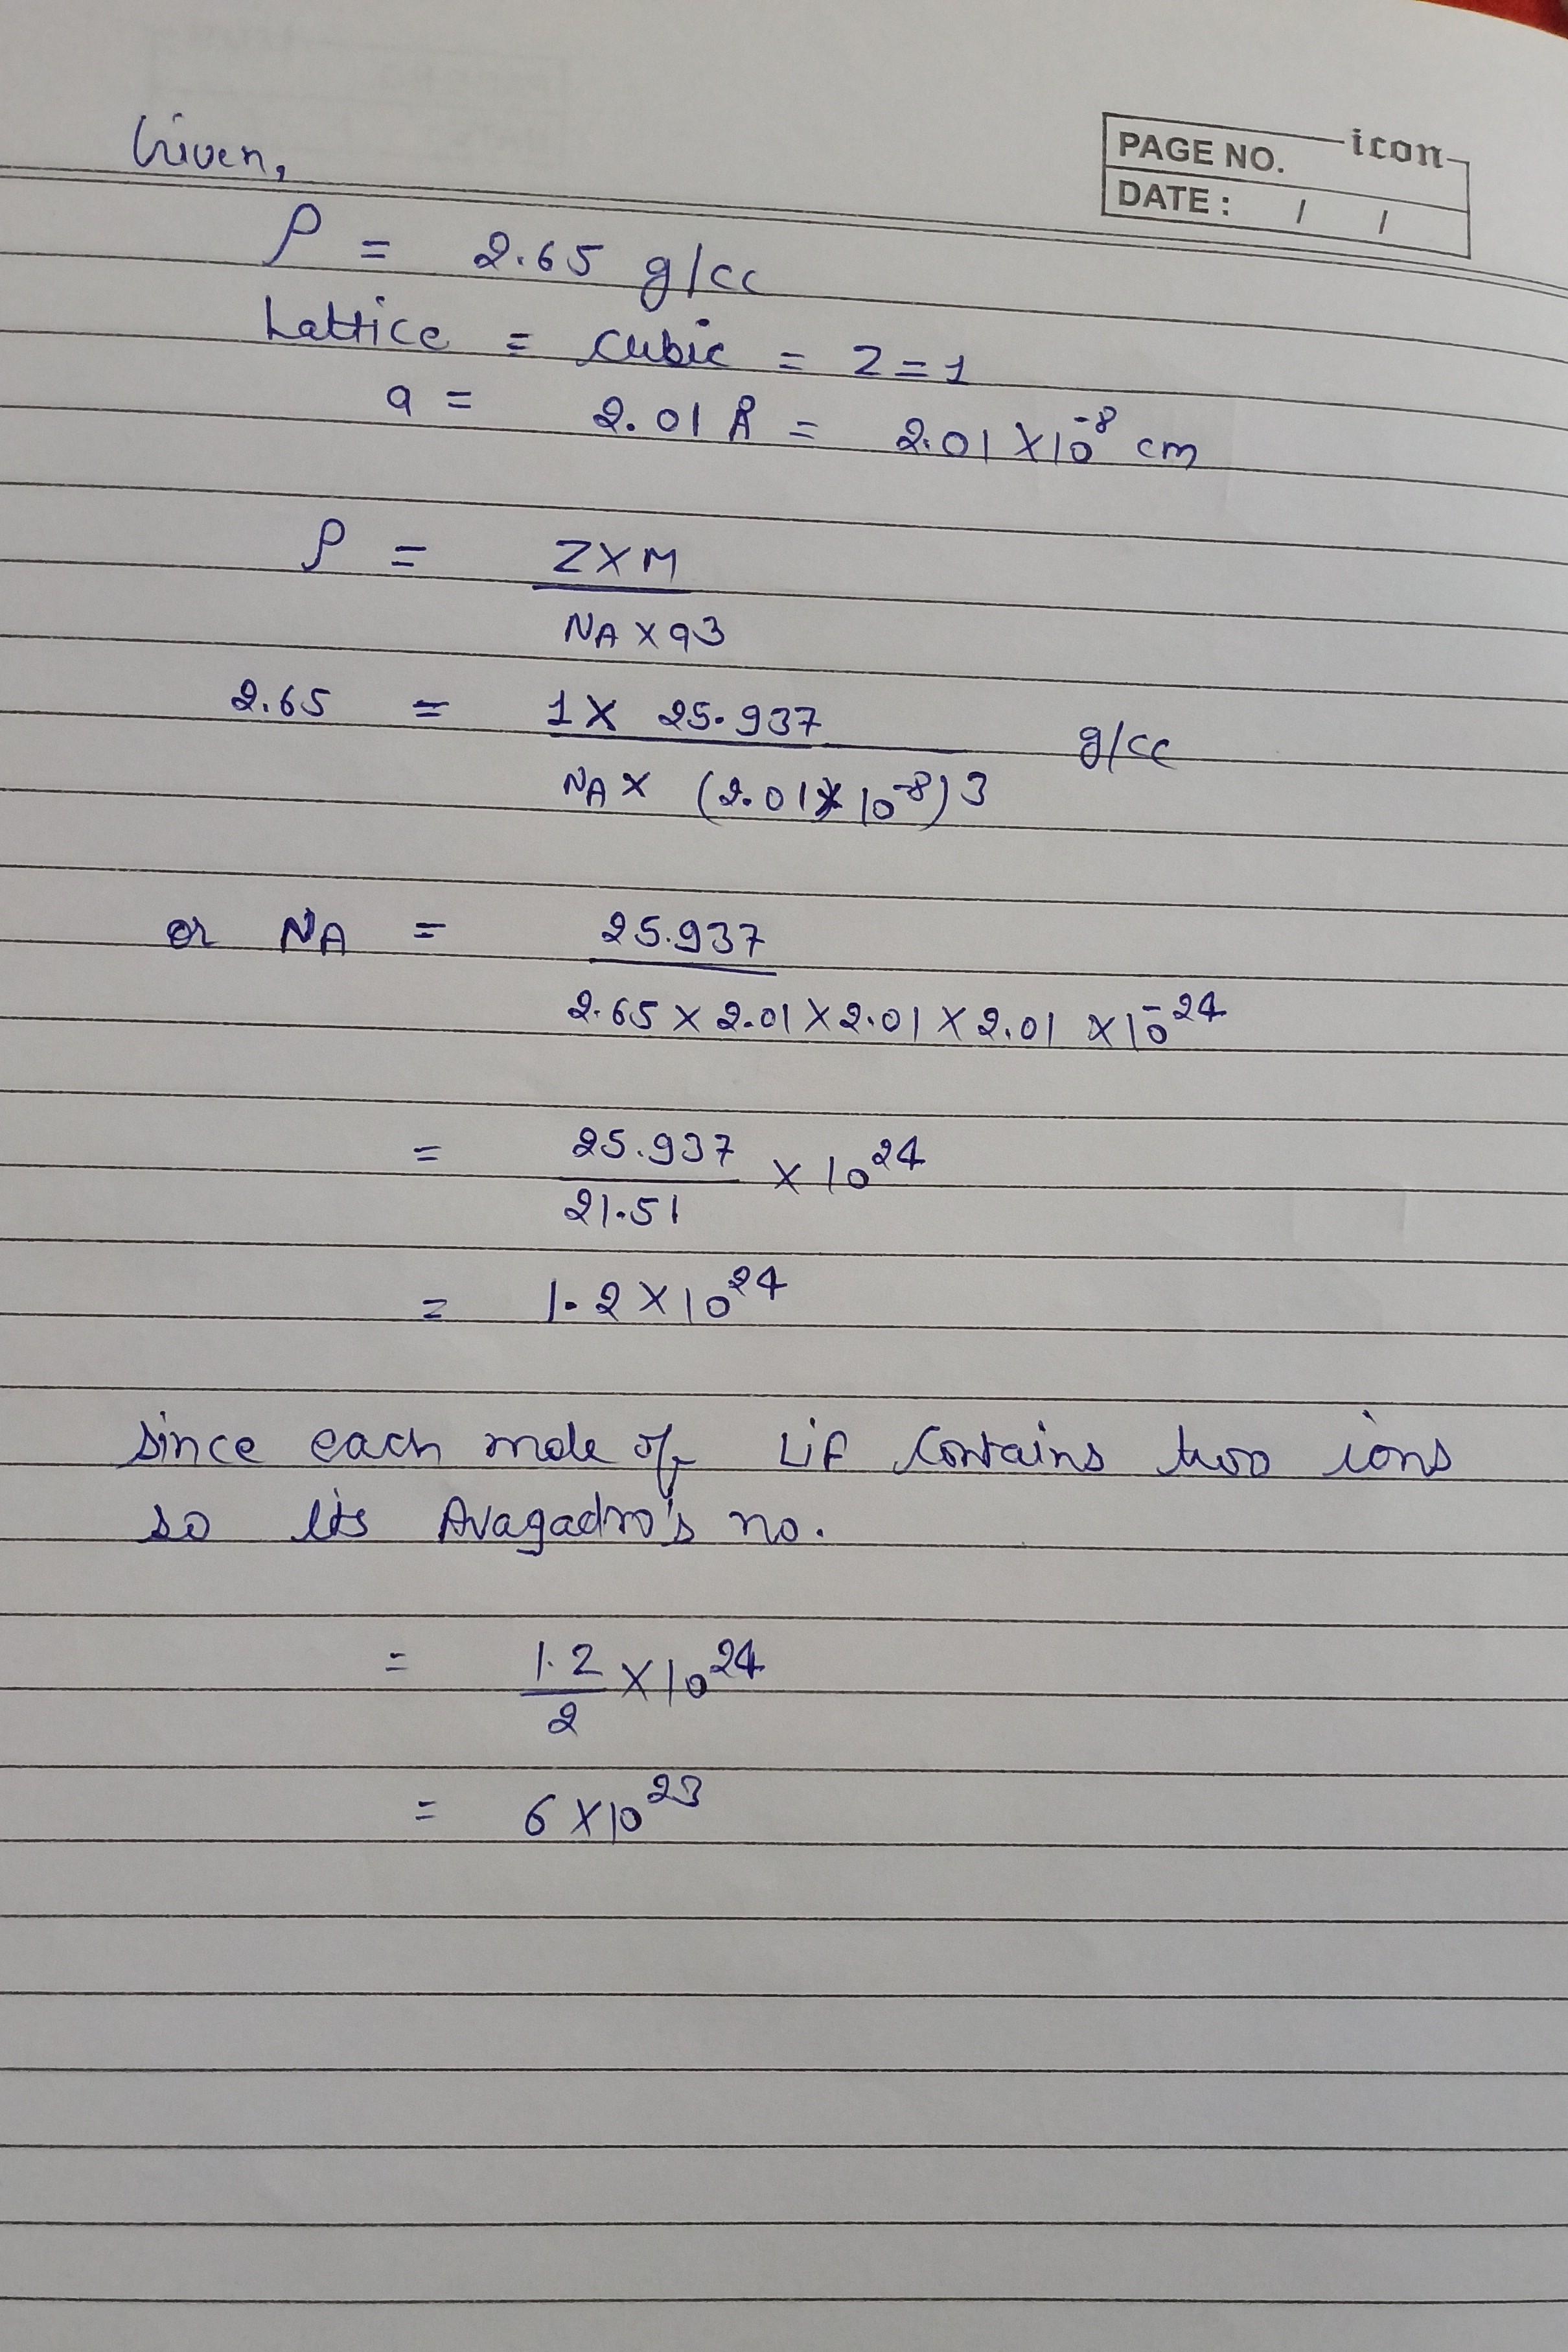 icon
PAGE NO.
DATE : / /
Given,
ρ = 2.65 g/cc
Lattice = cubic = Z = 1
a = 2.01 Å = 2.01 × 10⁻⁸ cm
ρ = Z × M
NA × a3
2.65 = 1 × 25.937 g/cc
NA × (2.01 × 10⁻⁸)3
or NA = 25.937
2.65 × 2.01 × 2.01 × 2.01 × 10⁻²⁴
= 25.937 × 10²⁴
21.51
= 1.2 × 10²⁴
Since each mole of LiF contains two ions
so its Avagadro's no.
= 1.2 × 10²⁴
2
= 6 × 10²³